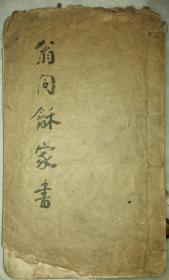 翁同龢家書